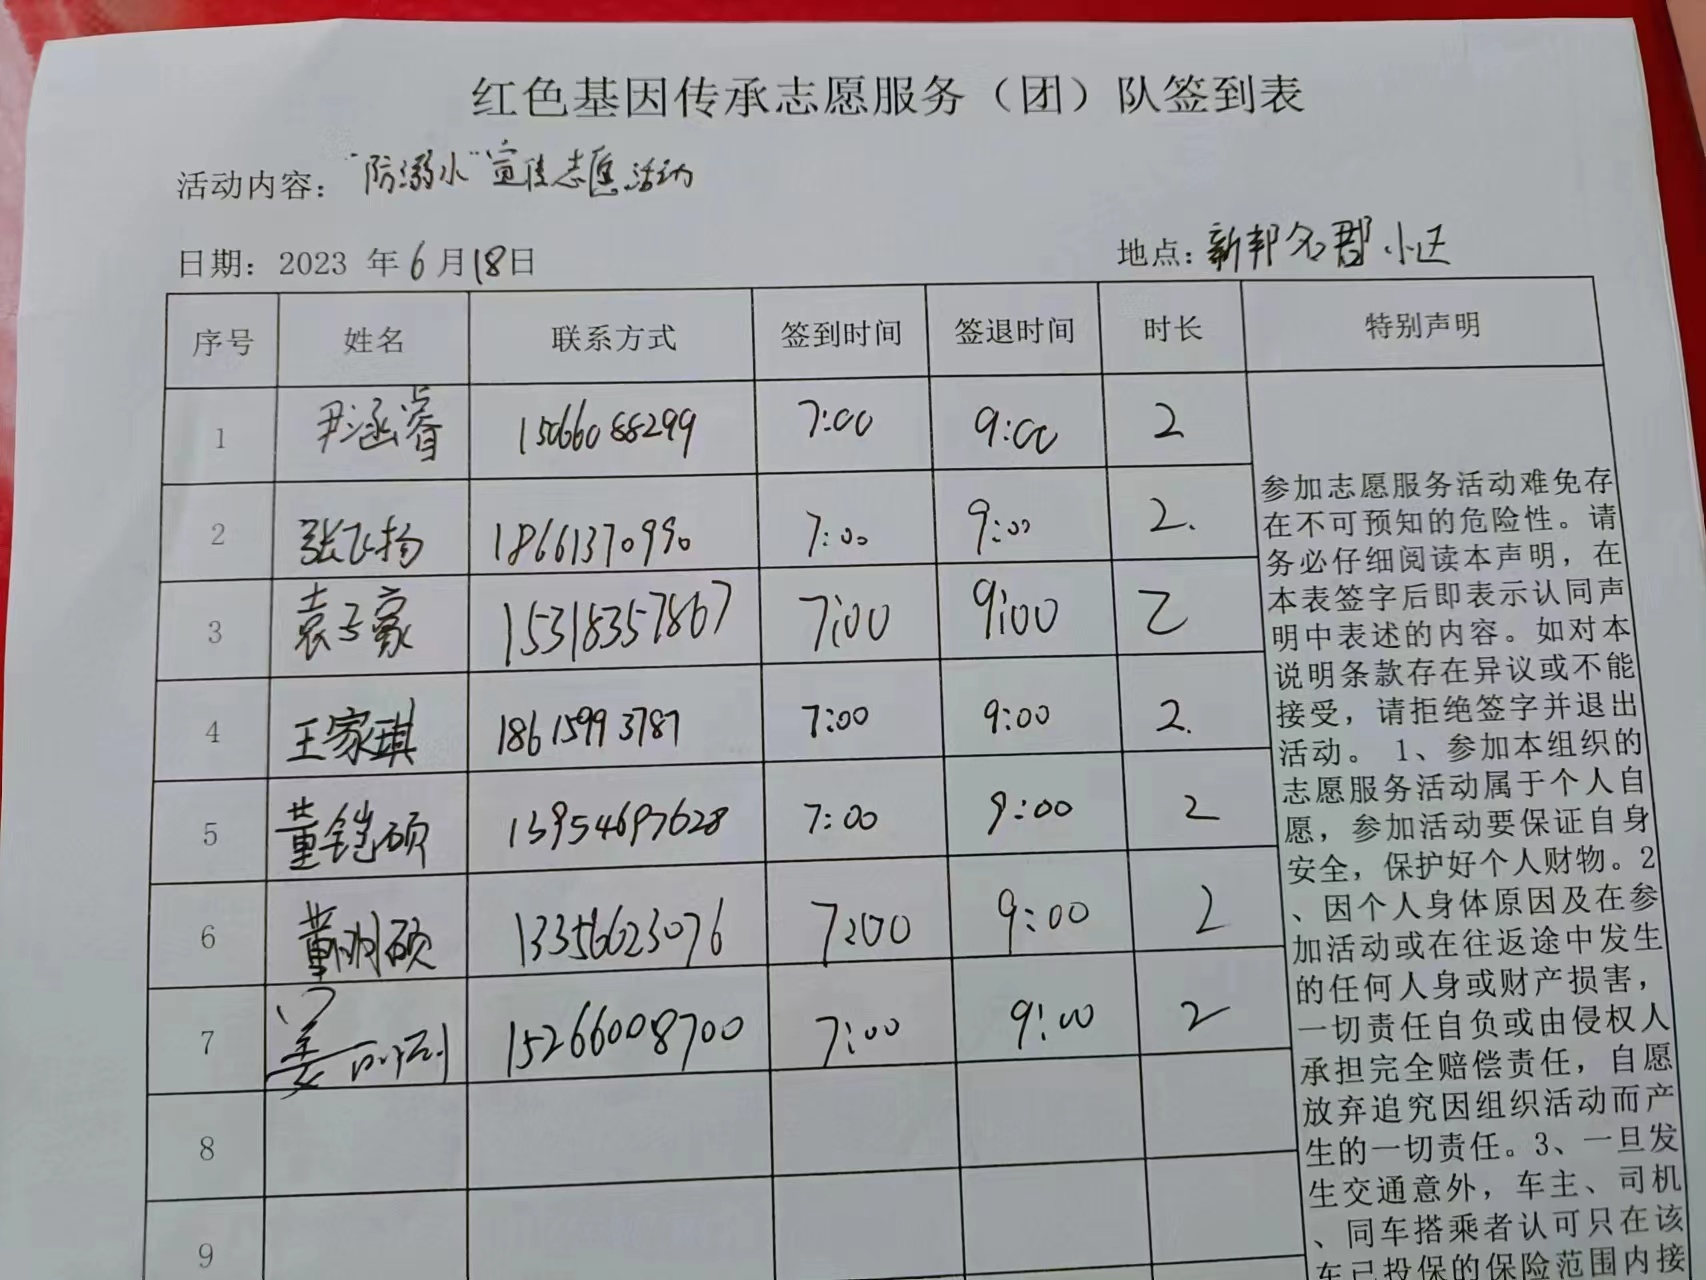 红色基因传承志愿服务（团）队签到表
活动内容："防溺水"宣传志愿活动
日期：2023 年6月18日 地点：新邦名郡小区
序号 姓名 联系方式 签到时间 签退时间 时长 特别声明
1 尹涵睿 15066088299 7:00 9:00 2
2 张飞扬 18661370990 7:00 9:00 2.
3 袁子豪 15318357867 7:00 9:00 2
4 王家琪 18615993787 7:00 9:00 2.
5 董铠硕 13954697628 7:00 9:00 2
6 董明硕 13356623076 7:00 9:00 2
7 姜 15266008700 7:00 9:00 2
8
9
参加志愿服务活动难免存
在不可预知的危险性。请
务必仔细阅读本声明，在
本表签字后即表示认同声
明中表述的内容。如对本
说明条款存在异议或不能
接受，请拒绝签字并退出
活动。 1、参加本组织的
志愿服务活动属于个人自
愿，参加活动要保证自身
安全，保护好个人财物。2
、因个人身体原因及在参
加活动或在往返途中发生
的任何人身或财产损害，
一切责任自负或由侵权人
承担完全赔偿责任，自愿
放弃追究因组织活动而产
生的一切责任。3、一旦发
生交通意外，车主、司机
、同车搭乘者认可只在该
车已投保的保险范围内接